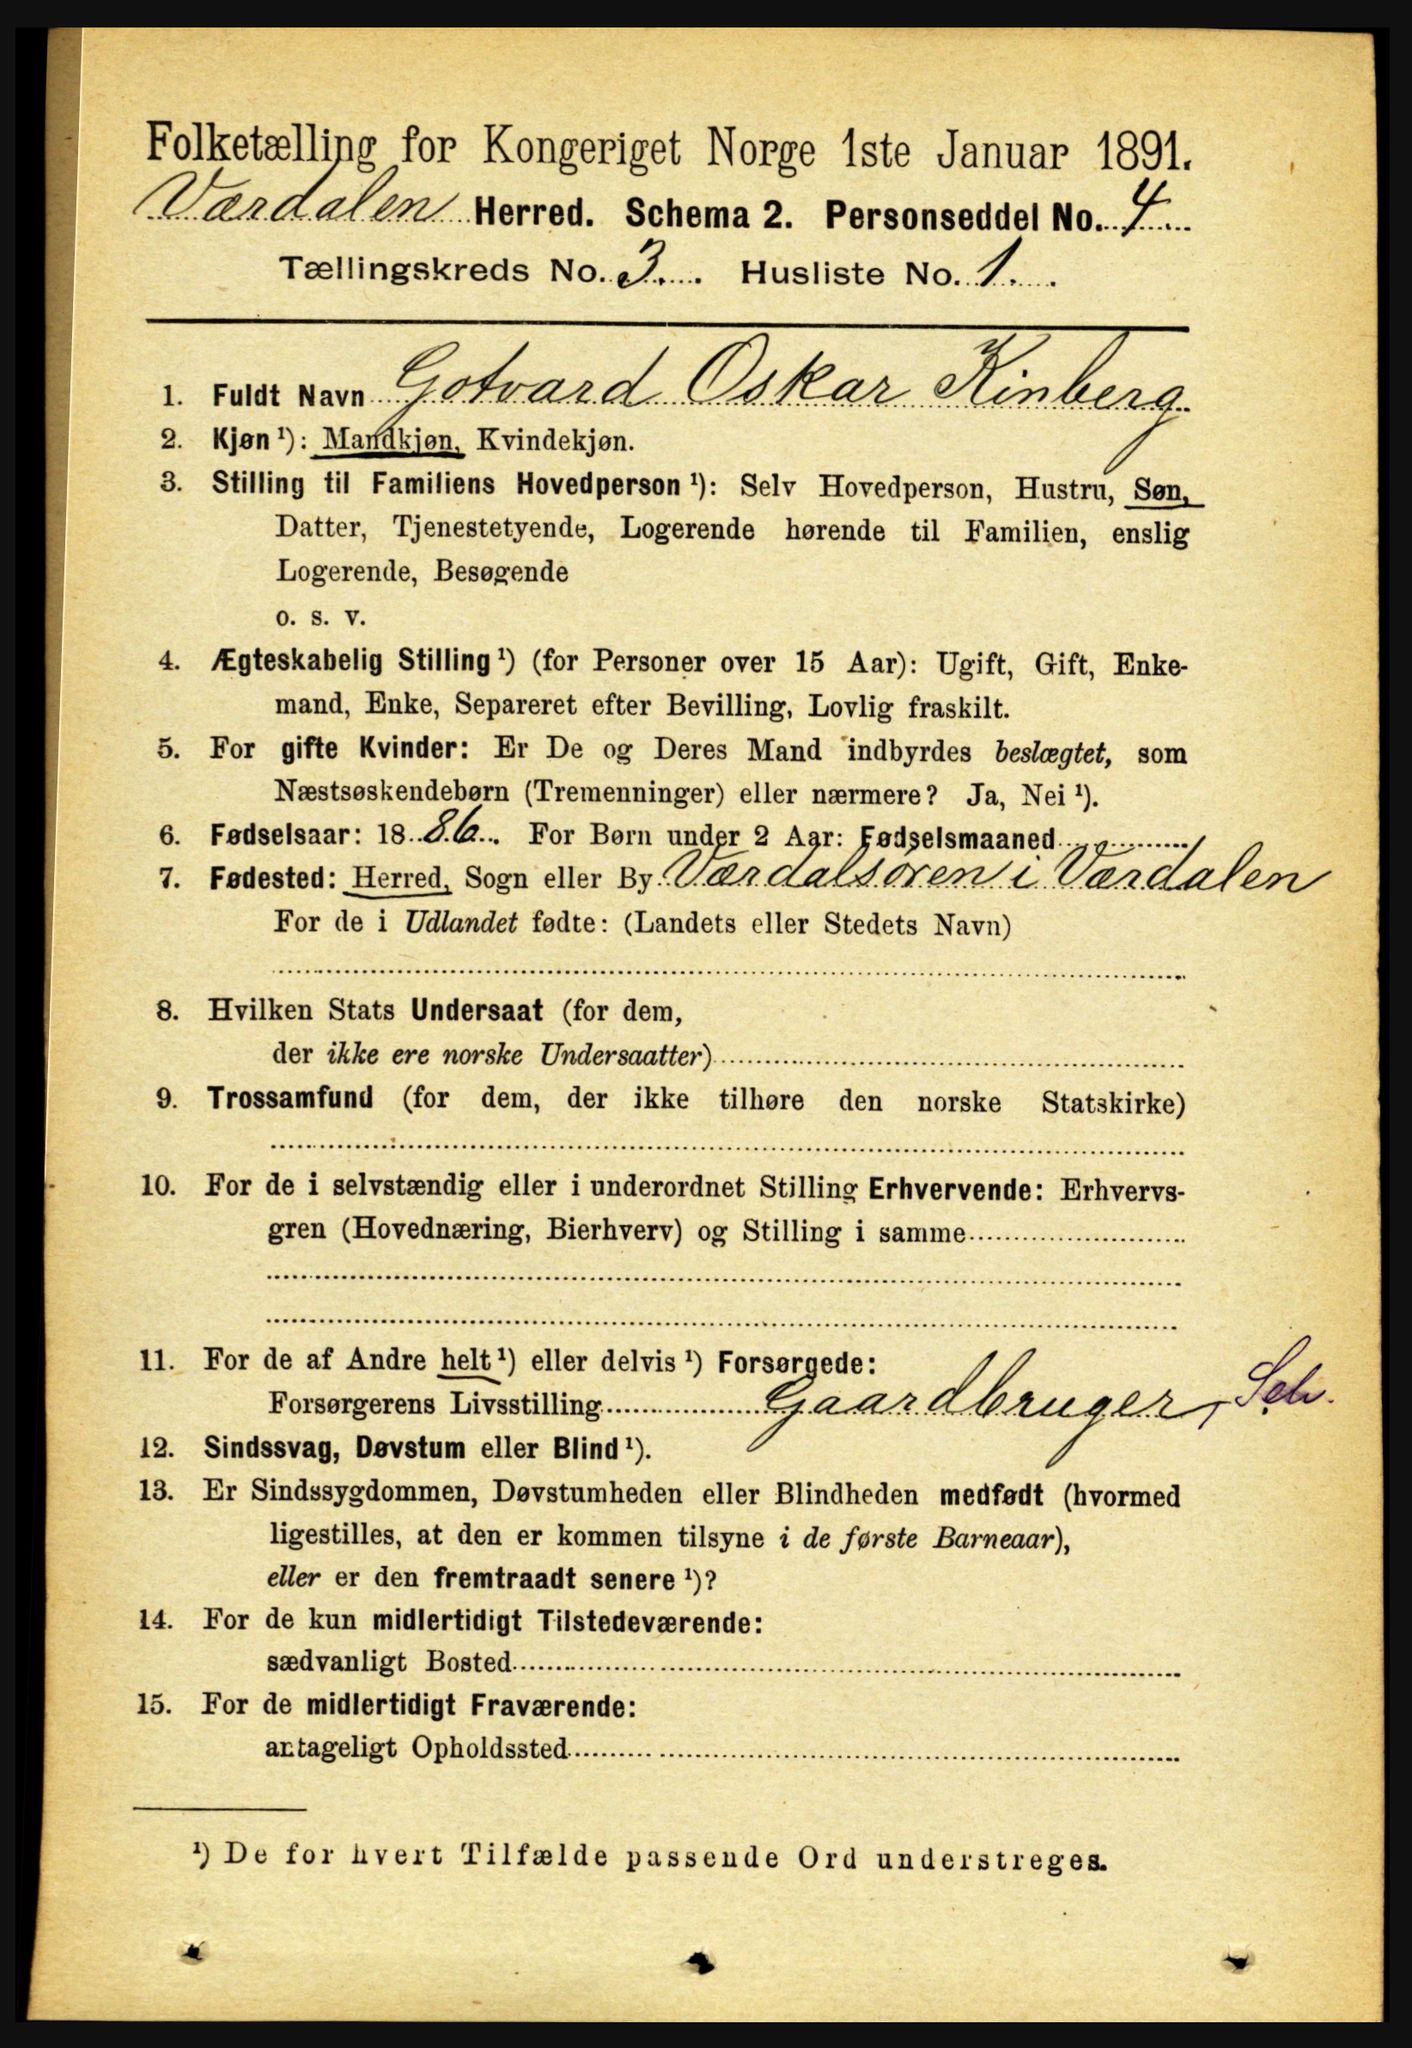 Folketælling for Kongeriget Norge 1ste Januar 1891.
Værdalen Herred. Schema 2. Personseddel No. 4
Tællingskreds No. 3. Husliste No. 1.
1. Fuldt Navn Gotvard Oskar Kinberg
2. Kjøn¹): Mandkjøn, Kvindekjøn.
3. Stilling til Familiens Hovedperson¹): Selv Hovedperson, Hustru, Søn,
Datter, Tjenestetyende, Logerende hørende til Familien, enslig
Logerende, Besøgende
o. s. v.
4. Ægteskabelig Stilling¹) (for Personer over 15 Aar): Ugift, Gift, Enke-
mand, Enke, Separeret efter Bevilling, Lovlig fraskilt.
5. For gifte Kvinder: Er De og Deres Mand indbyrdes beslægtet, som
Næstsøskendebørn (Tremenninger) eller nærmere? Ja, Nei¹).
6. Fødselsaar: 1886. For Børn under 2 Aar: Fødselsmaaned
7. Fødested: Herred, Sogn eller By Værdalsøren i Værdalen
For de i Udlandet fødte: (Landets eller Stedets Navn)
8. Hvilken Stats Undersaat (for dem,
der ikke ere norske Undersaatter)
9. Trossamfund (for dem, der ikke tilhøre den norske Statskirke)
10. For de i selvstændig eller i underordnet Stilling Erhvervende: Erhvervs-
gren (Hovednæring, Bierhverv) og Stilling i samme
11. For de af Andre helt¹) eller delvis¹) Forsørgede:
Forsørgerens Livsstilling Gaardbruger, Selv.
12. Sindssvag, Døvstum eller Blind¹).
13. Er Sindssygdommen, Døvstumheden eller Blindheden medfødt (hvormed
ligestilles, at den er kommen tilsyne i de første Barneaar),
eller er den fremtraadt senere¹)?
14. For de kun midlertidigt Tilstedeværende:
sædvanligt Bosted
15. For de midlertidigt Fraværende:
antageligt Opholdssted
¹) De for hvert Tilfælde passende Ord understreges.